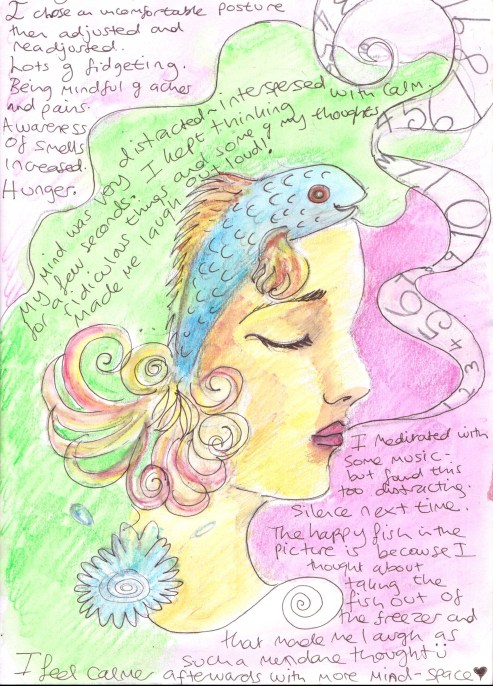 I chose an uncomfortable posture
then adjusted and
readjusted.
Lots of fidgeting.
Being Mindful of aches
and pains.
Awareness
of smells
increased.
Hunger.
My mind was very distracted - interspersed with calm
for a few seconds. I kept thinking
ridiculous things and some of my thoughts
made me laugh out loud!
I meditated with
some music -
but found this
too distracting.
Silence next time.
The happy fish in the
picture is because I
thought about
taking the
fish out of
the freezer and
that made me laugh as
such a mundane thought!
I feel calmer afterwards with more mind-space